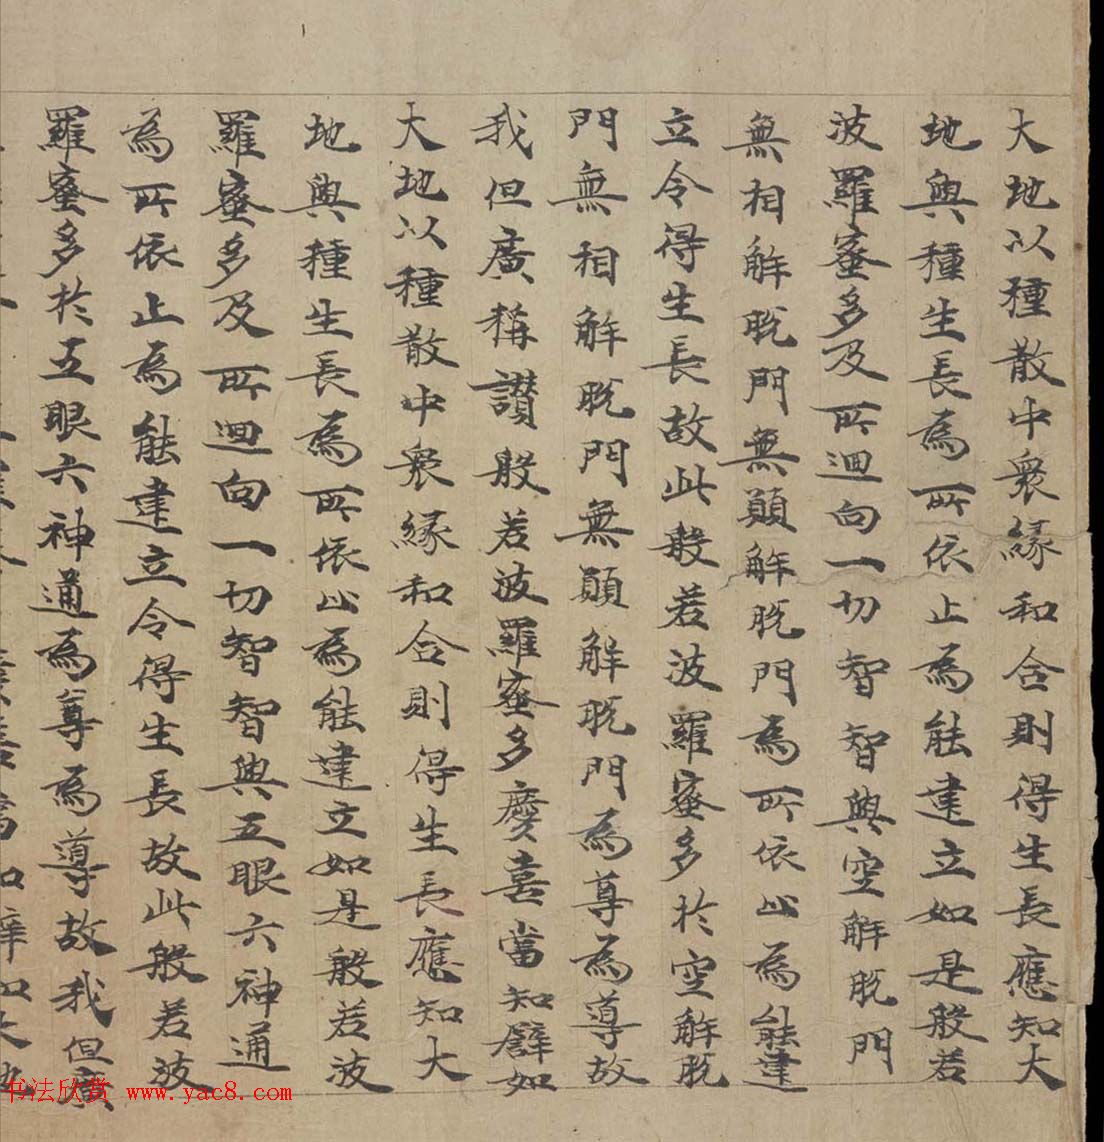 大地以種散中衆緣和合則得生長應知大
地與種生長為所依止為能建立如是般若
波羅蜜多及所迴向一切智智與空解脫門
無相解脫門無願解脫門為所依止為能建
立令得生長故此般若波羅蜜多於空解脫
門無相解脫門無願解脫門為尊為導故
我但廣稱讚般若波羅蜜多慶喜當知譬如
大地以種散中衆緣和合則得生長應知大
地與種生長為所依止為能建立如是般若波
羅蜜多及所迴向一切智智與五眼六神通
為所依止為能建立令得生長故此般若波
羅蜜多於五眼六神通為尊為導故我但廣
书法欣赏 www.yac8.com